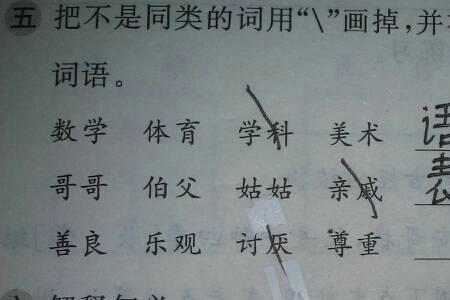 五 把不是同类的词用“\”画掉,并
词语。
数学 体育 学科 美术 语
哥哥 伯父 姑姑 亲戚 表
善良 乐观 讨厌 尊重